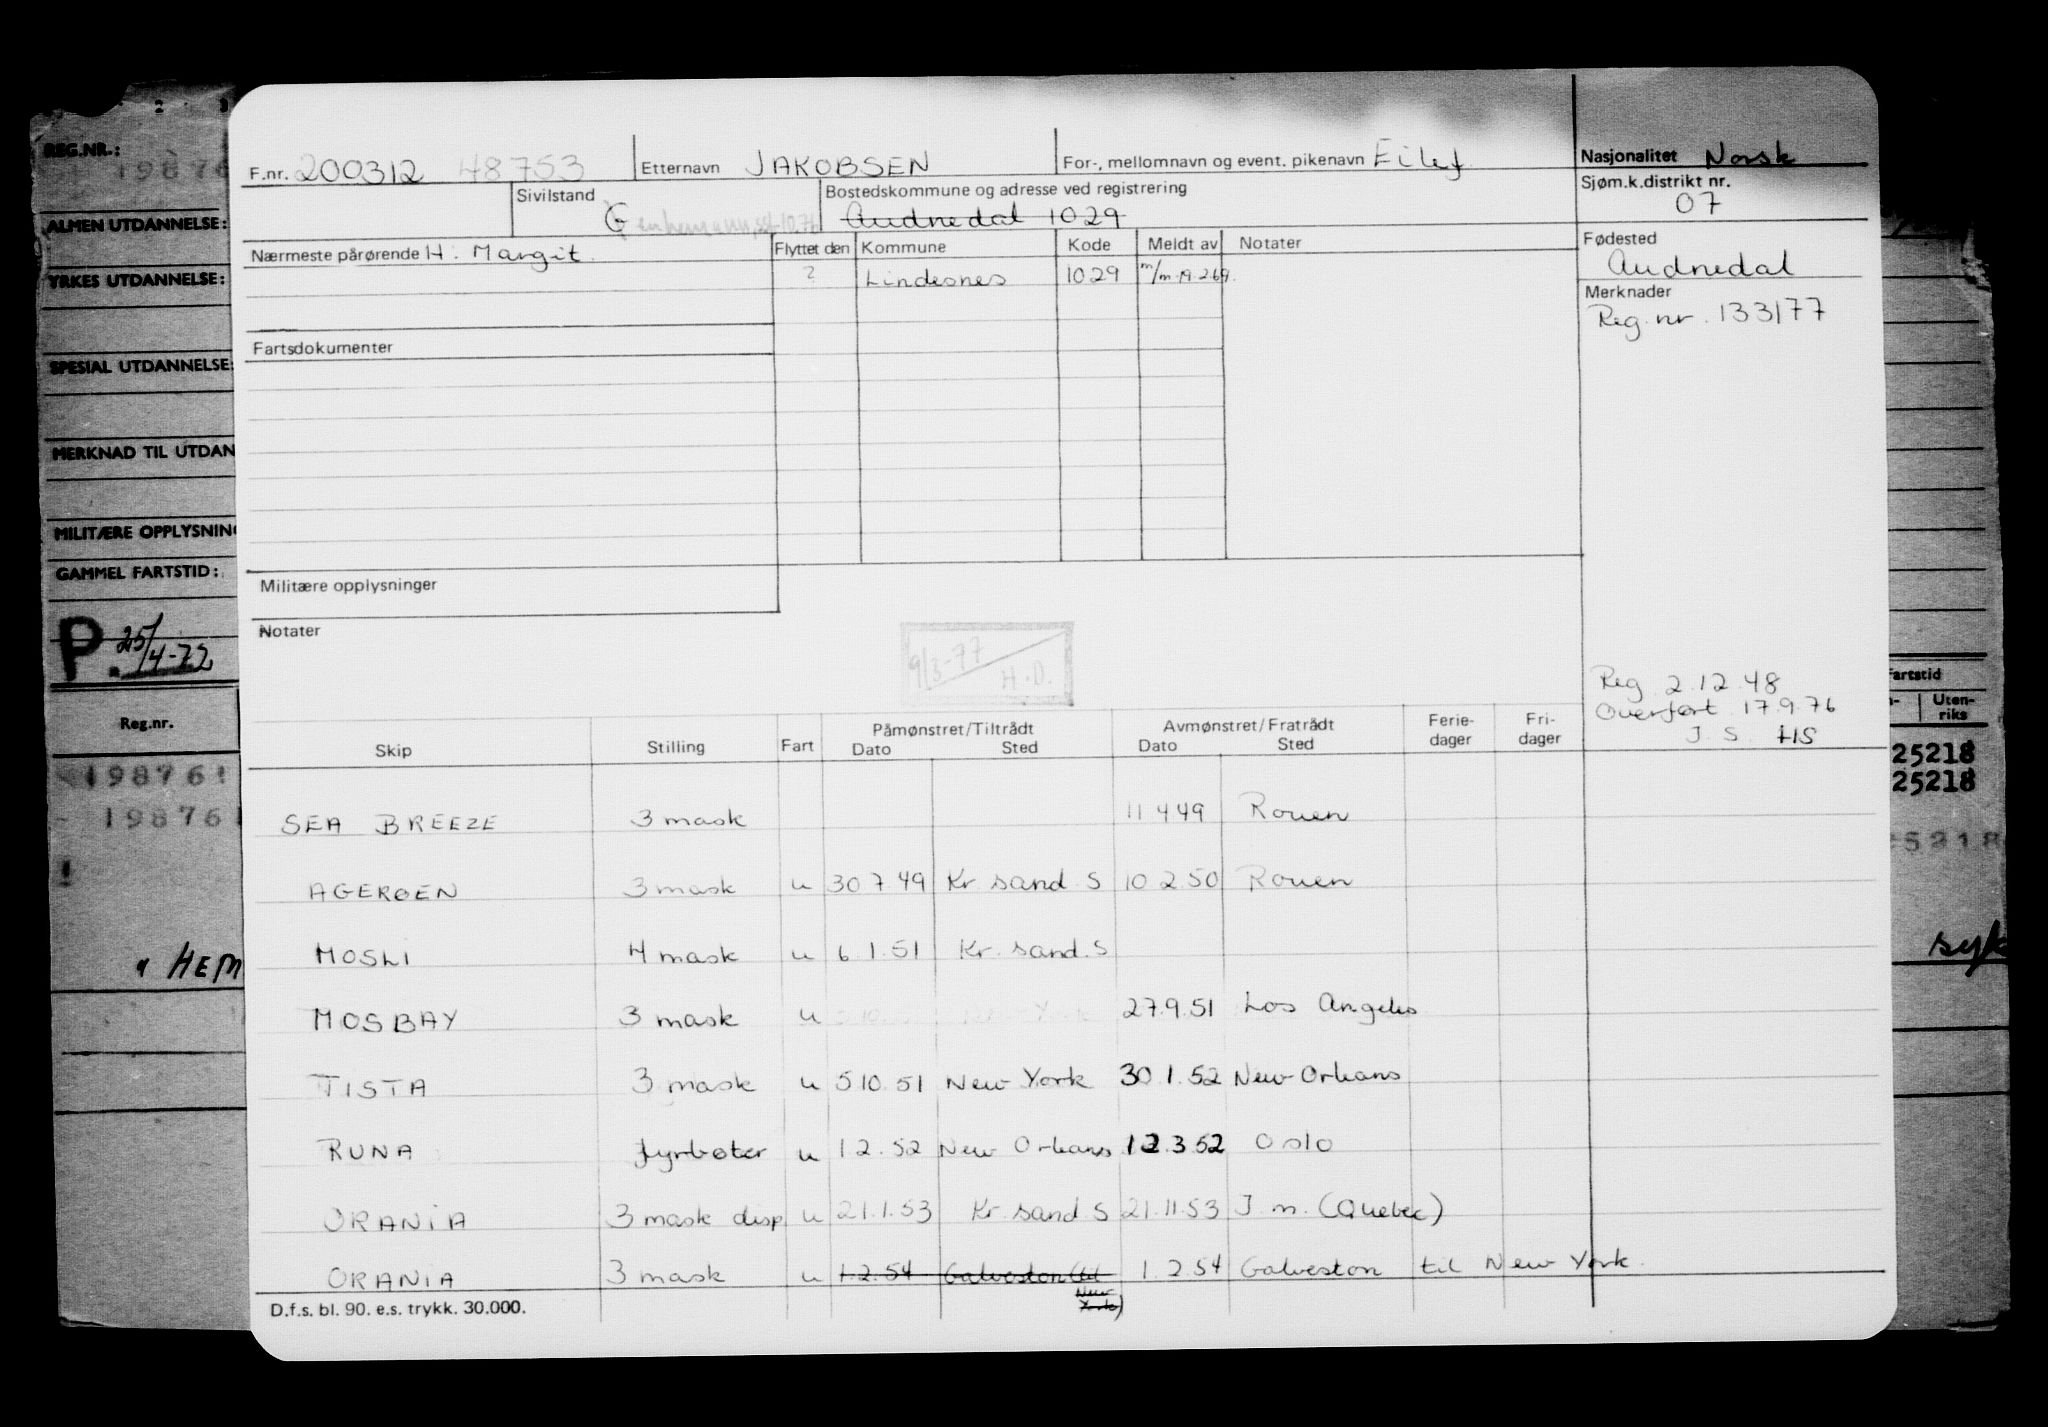 REG.NR.:
ALMEN UTDANNELSE:
YRKES UTDANNELSE:
SPESIAL UTDANNELSE:
MERKNAD TIL UTDAN
MILITÆRE OPPLYSNING
GAMMEL FARTSTID:
P. 25/4-72
Reg.nr.
19876
19876
" HEM
F.nr. 200312 48753 Etternavn JAKOBSEN For-, mellomnavn og event. pikenavn Eilef Nasjonalitet Norsk
Sivilstand G Bostedskommune og adresse ved registrering Audnedal 1029 Sjøm.k.distrikt nr. 07
Nærmeste pårørende H: Margit. Flyttet den Kommune Kode Meldt av Notater Fødested
Audnedal
? Lindesnes 1029 m/m 19.2.69.
Merknader
Reg. nr. 133/77
Fartsdokumenter
Militære opplysninger
Notater
9/3-77 H.D.
Reg 2.12.48
Overført 17.9.76
J. S. HS
Skip Stilling Fart Påmønstret/Tiltrådt Dato Sted Avmønstret/Fratrådt Dato Sted Ferie-dager Fri-dager
SEA BREEZE 3 mask 11 4 49 Rouen
AGERØEN 3 mask u 30 7 49 Kr. sand. S 10 2.50 Rouen
MOSLI 4 mask u 6.1.51 Kr. sand. S
MOSBAY 3 mask u 27.9.51 Los Angeles
TISTA 3 mask u 5 10.51 New York 30.1.52 New Orleans
RUNA fyrbøter u 1 2.52 New Orleans 12.3.52 Oslo
ORANIA 3 mask disp u 21.1.53 Kr. sand S 21.11.53 J. m. (Quebec)
ORANIA 3 mask u 1.2.54 Galveston (til New York) 1.2.54 Galveston til New York.
D.f.s. bl. 90. e.s. trykk. 30.000.
Fartstid
Uten-
riks
25218
25218
5218
syk